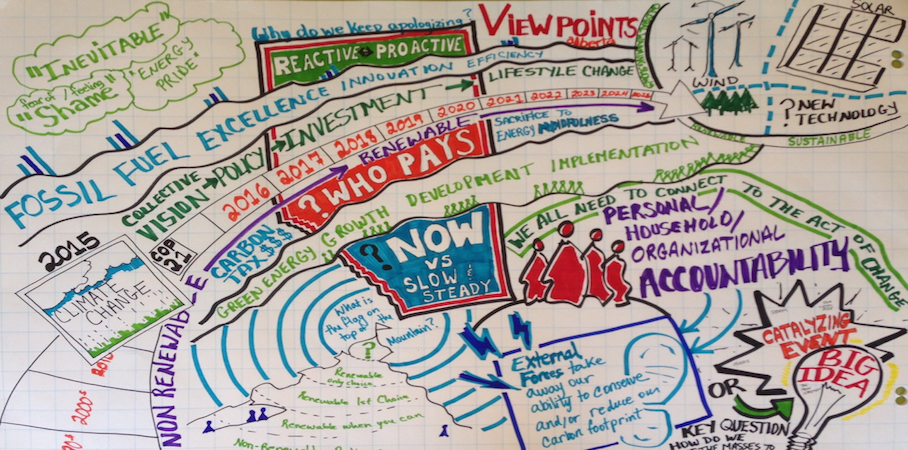 Why do we keep apologizing?
VIEWPOINTS
alberta
SOLAR
"INEVITABLE"
fear of / feeling
"Shame"
"ENERGY
PRIDE"
REACTIVE PROACTIVE
FOSSIL FUEL EXCELLENCE INNOVATION EFFICIENCY
LIFESTYLE CHANGE
WIND
? NEW
TECHNOLOGY
SUSTAINABLE
COLLECTIVE
VISION → POLICY → INVESTMENT
2016 2017 2018 2019 2020 2021 2022 2023 2024
RENEWABLE
SACRIFICE TO
ENERGY MINDFULNESS
? WHO PAYS
2015
COP
21
CLIMATE
CHANGE
CARBON
TAX $$$
GREEN ENERGY GROWTH DEVELOPMENT IMPLEMENTATION
NON RENEWABLE
2010
2000s
? NOW
VS
SLOW &
STEADY
WE ALL NEED TO CONNECT TO THE ACT OF CHANGE
PERSONAL/
HOUSEHOLD/
ORGANIZATIONAL
ACCOUNTABILITY
What is
the flag on
top of the
Mountain?
?
Renewable
only choice
Renewable 1st Choice
Renewable when you can
External
Forces take
away our
ability to conserve
and/or reduce our
carbon footprint
CATALYZING
EVENT
OR
BIG
IDEA
KEY QUESTION
HOW DO WE
THE MASSES TO